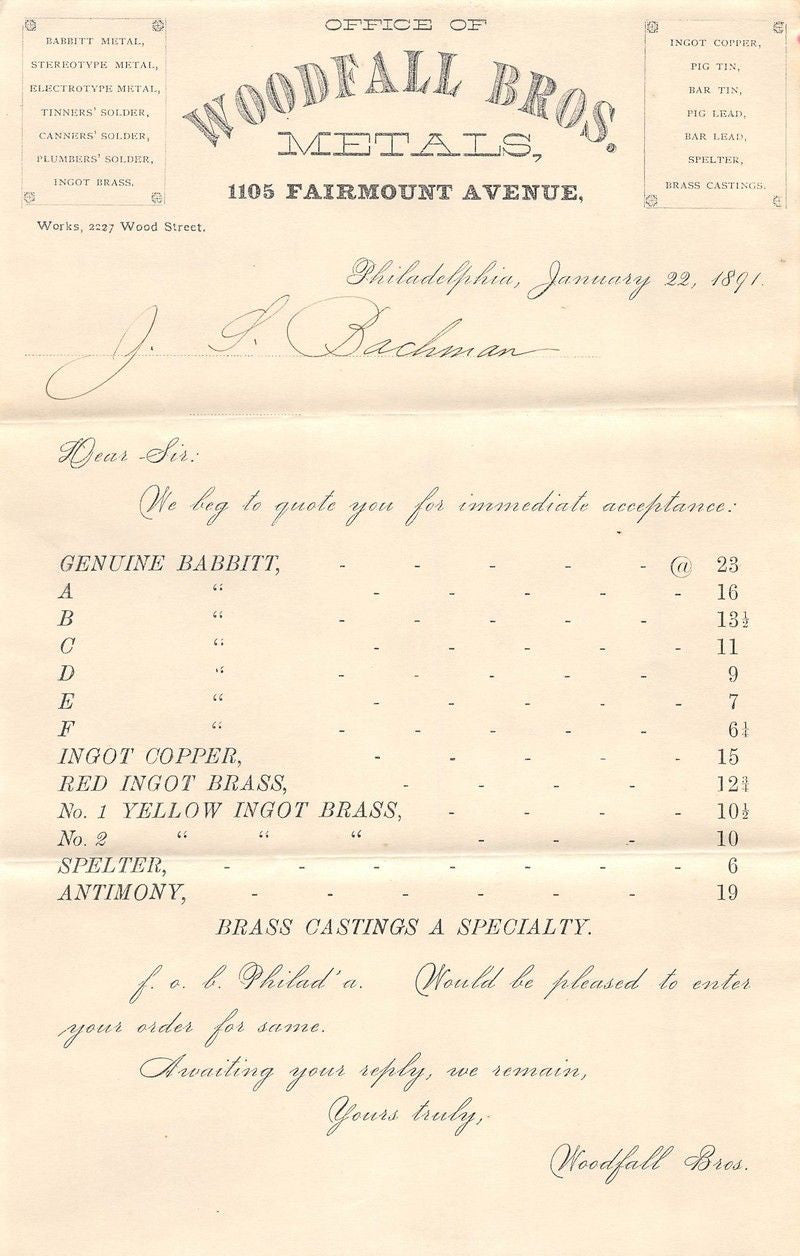 BABBITT METAL,
STEREOTYPE METAL,
ELECTROTYPE METAL,
TINNERS' SOLDER,
CANNERS' SOLDER,
PLUMBERS' SOLDER,
INGOT BRASS.
OFFICE OF
WOODFALL BROS.
METALS,
1105 FAIRMOUNT AVENUE,
INGOT COPPER,
PIG TIN,
BAR TIN,
PIG LEAD,
BAR LEAD,
SPELTER,
BRASS CASTINGS.
Works, 2227 Wood Street.
Philadelphia, January 22, 1891.
J. S. Bachman
Dear Sir:
We beg to quote you for immediate acceptance:
GENUINE BABBITT, - - - - - @ 23
A “ - - - - - 16
B “ - - - - - 13½
C “ - - - - - 11
D “ - - - - - 9
E “ - - - - - 7
F “ - - - - - 6¼
INGOT COPPER, - - - - - 15
RED INGOT BRASS, - - - - 12¾
No. 1 YELLOW INGOT BRASS, - - - - 10½
No. 2 “ “ “ - - - 10
SPELTER, - - - - - - - 6
ANTIMONY, - - - - - - 19
BRASS CASTINGS A SPECIALTY.
f. o. b. Philad'a. Would be pleased to enter
your order for same.
Awaiting your reply, we remain,
Yours truly,
Woodfall Bros.